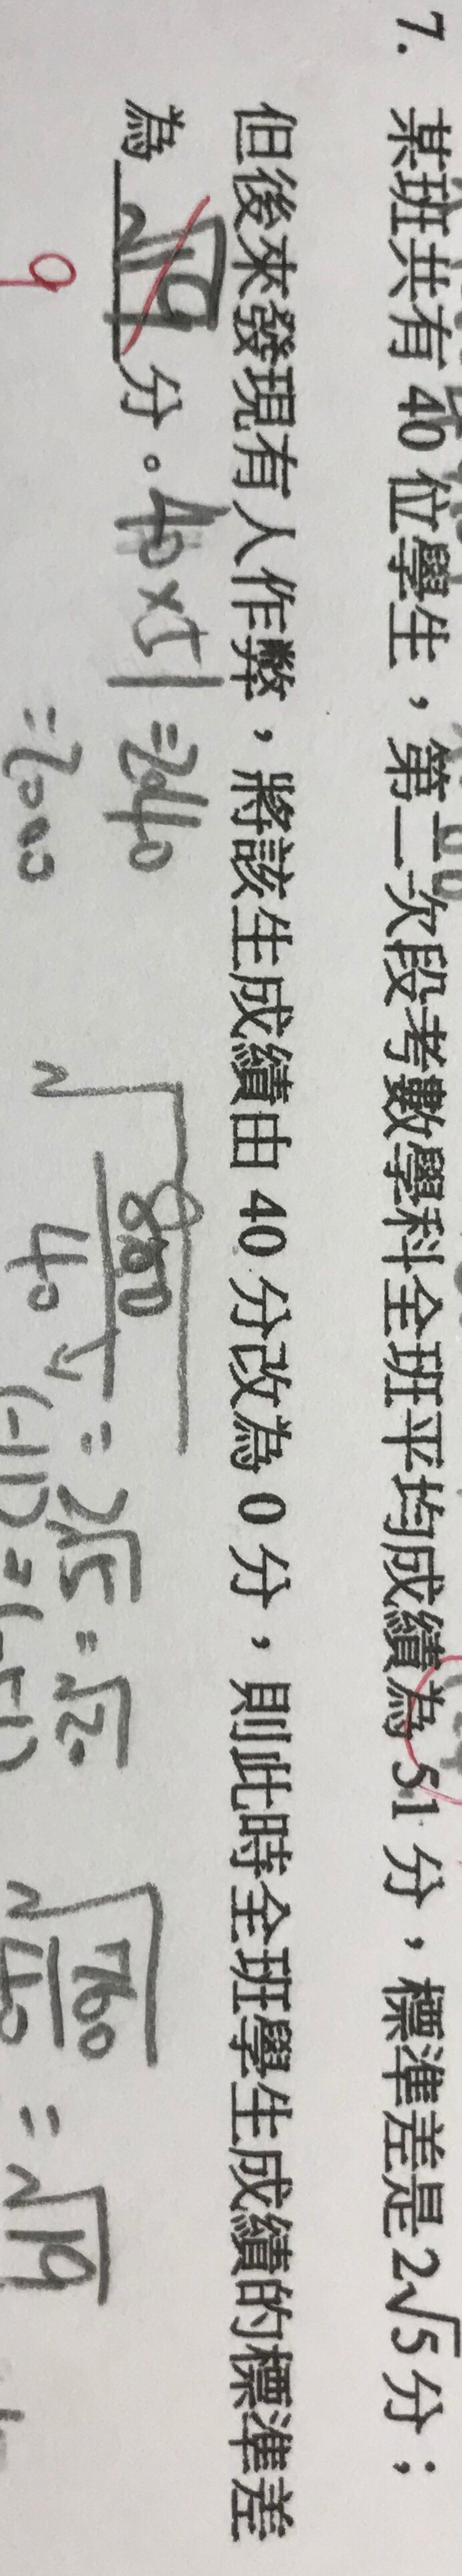 7. 某班共有 40 位學生，第二次段考數學科全班平均成績為 51 分，標準差是 2√5 分；
但後來發現有人作弊，將該生成績由 40 分改為 0 分，則此時全班學生成績的標準差
為 √19 分。 40×51=2040
9
=2000
√(800/40) = 2√5 = √20
(-11)=(-11)
√(760/40) = √19